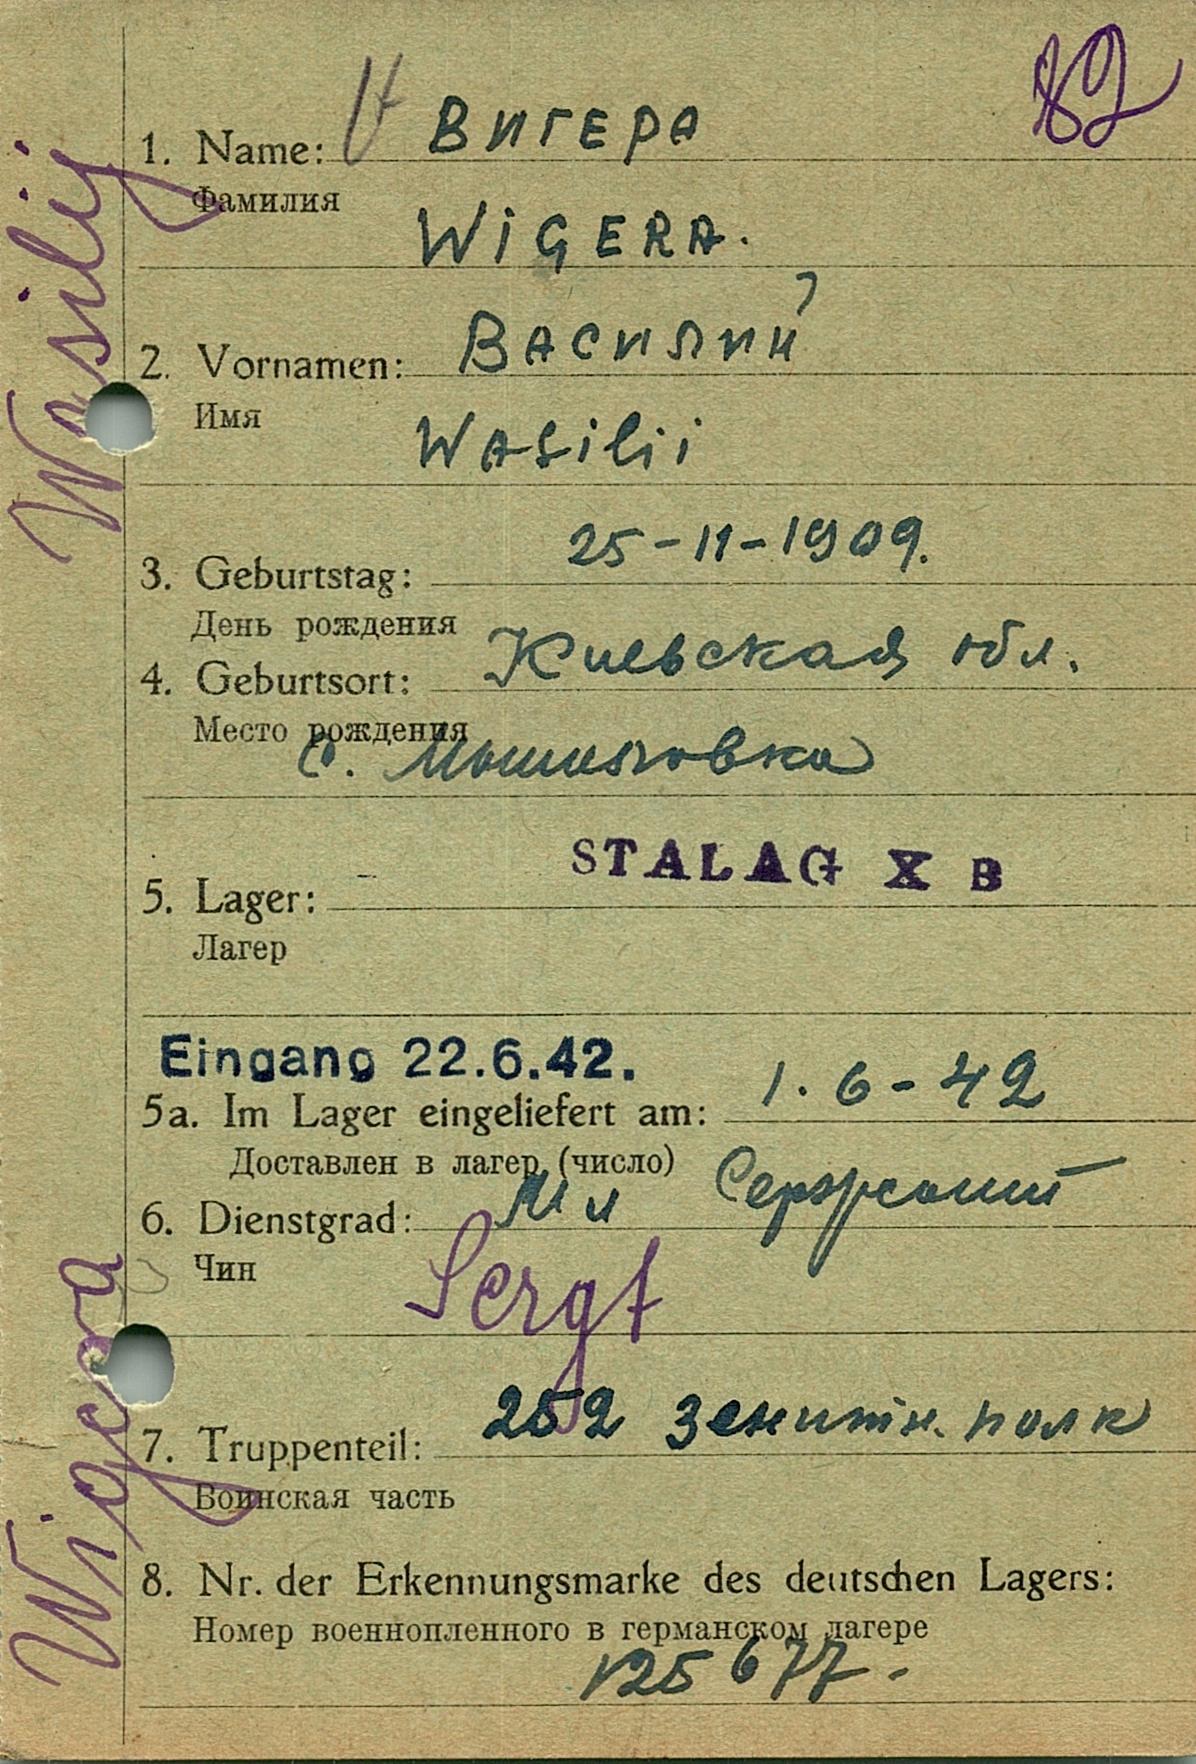 82
1. Name: ВИГЕРА
Фамилия
WIGERA.
2. Vornamen: ВАСИЛИЙ
Имя
WASilii
3. Geburtstag: 25-11-1909.
День рождения
4. Geburtsort: Киевская обл.
Место рождения
с.
STALAG X B
5. Lager:
Лагер
Eingang 22.6.42.
5a. Im Lager eingeliefert am: 1.6-42
Доставлен в лагер (число)
6. Dienstgrad: Мл Сержант
Чин
Sergt
7. Truppenteil: 252 Зенитн. полк
Воинская часть
8. Nr. der Erkennungsmarke des deutschen Lagers:
Номер военнопленного в германском лагере
125677.
Wigera Wasilij